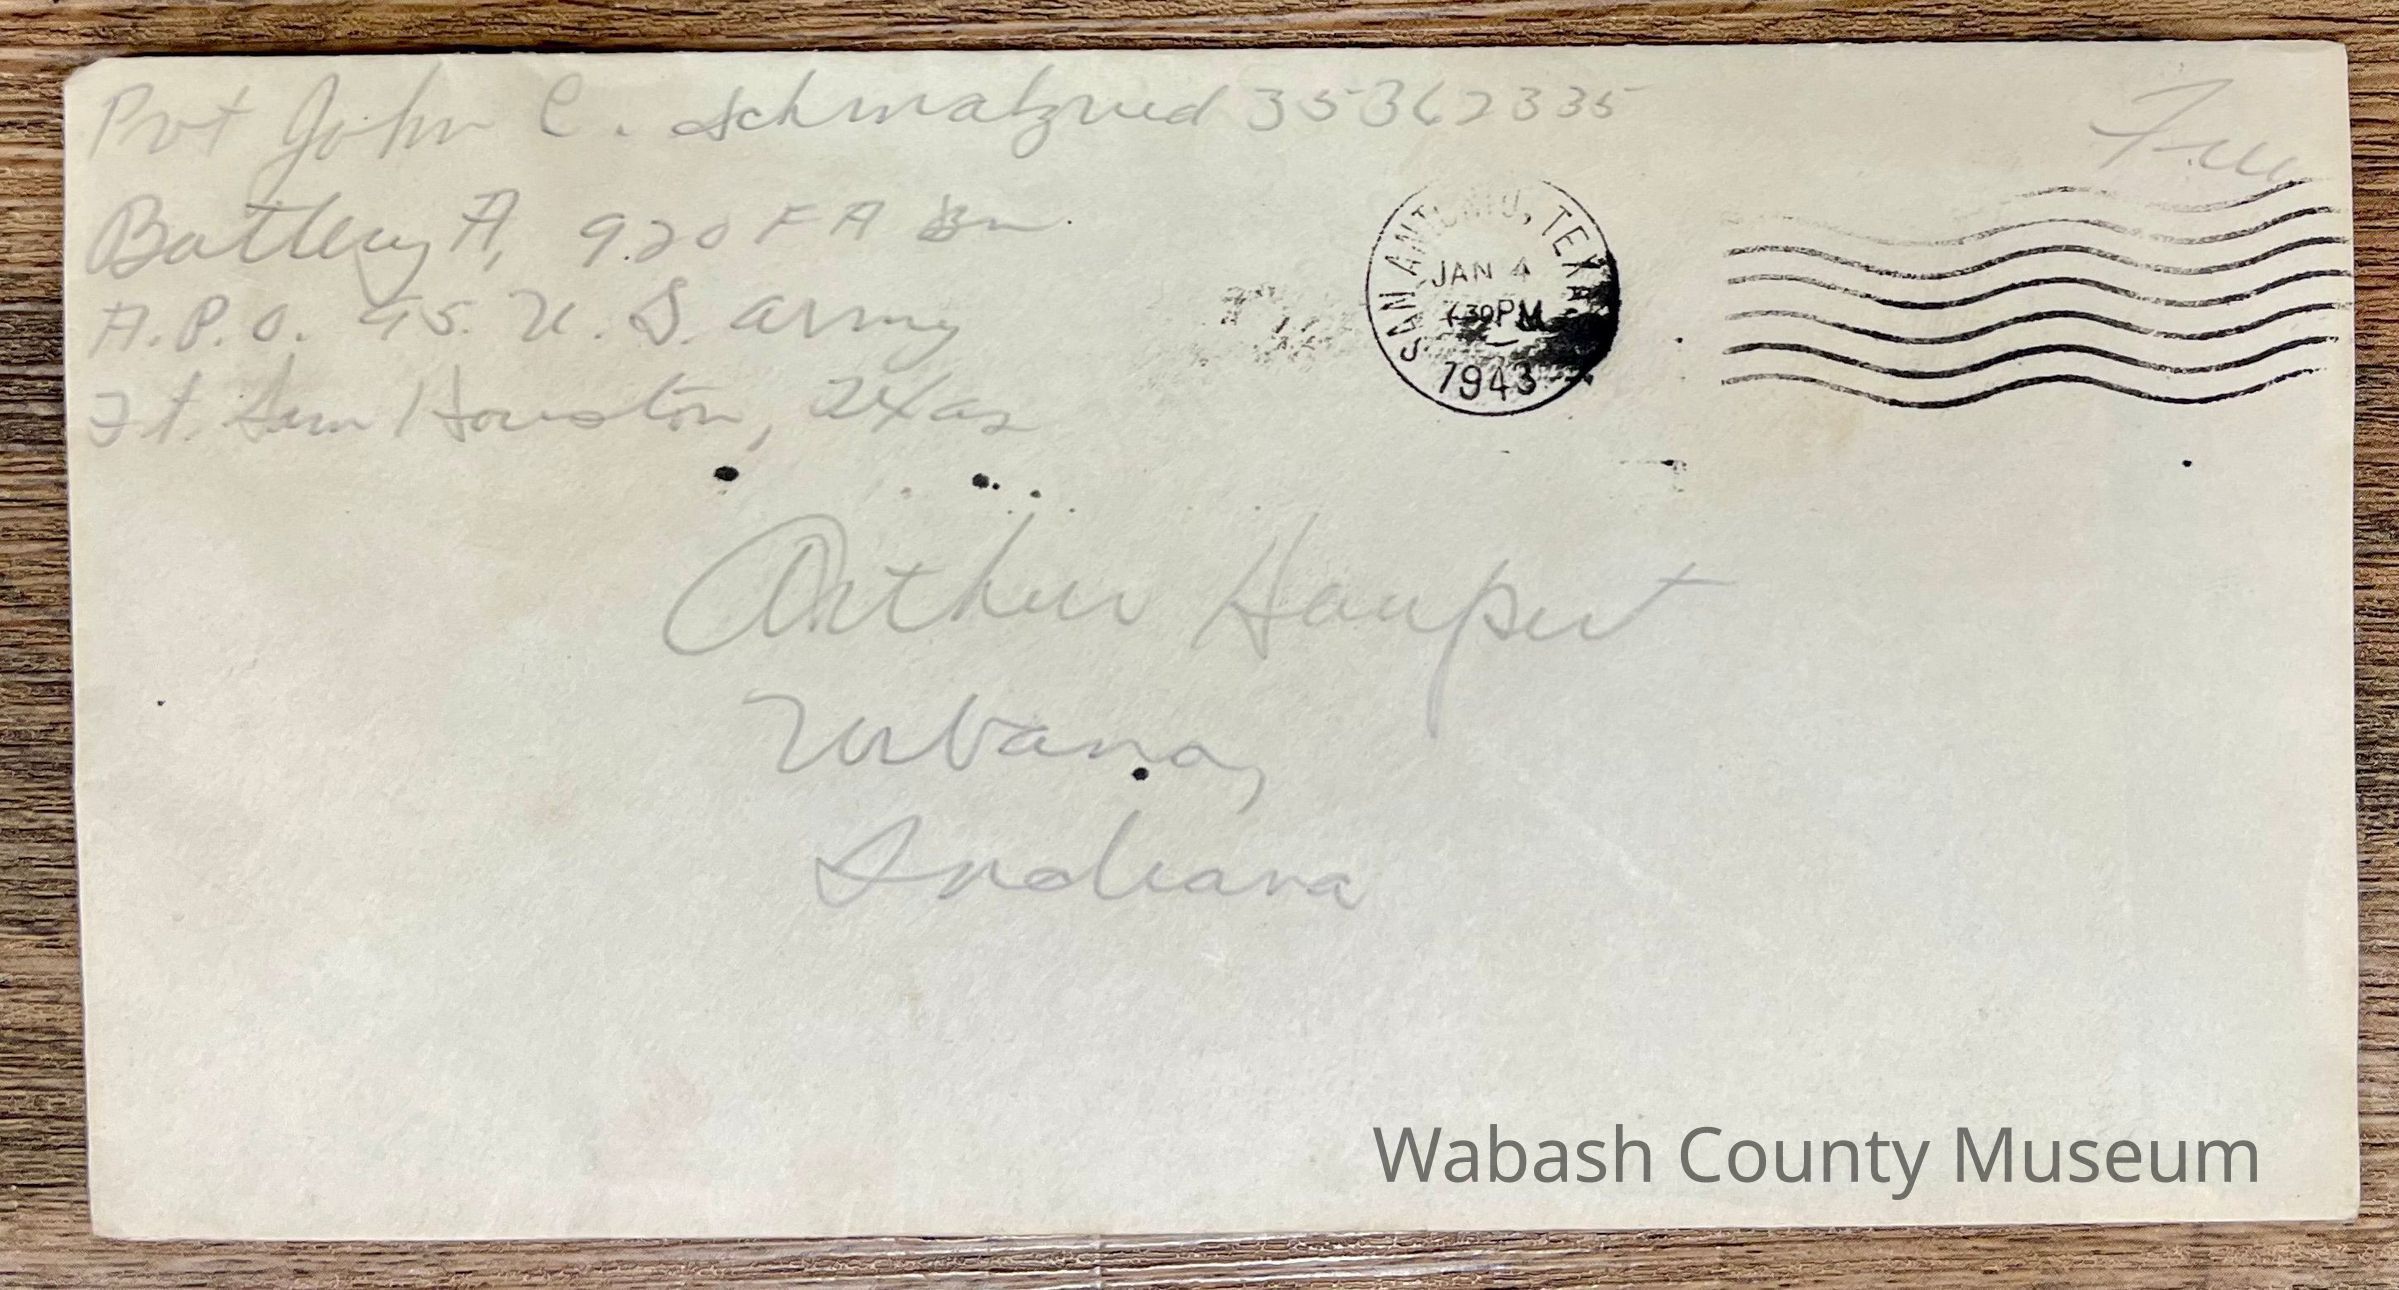 Pvt John C. Schmalzried 35362335
Free
Battery A, 920 F A Bn.
A.P.O. 95. U. S. Army
Ft. Sam Houston, Texas
SAN ANTONIO, TEXAS
JAN 4
30PM
1943
Arthur Haupert
Urbana,
Indiana
Wabash County Museum